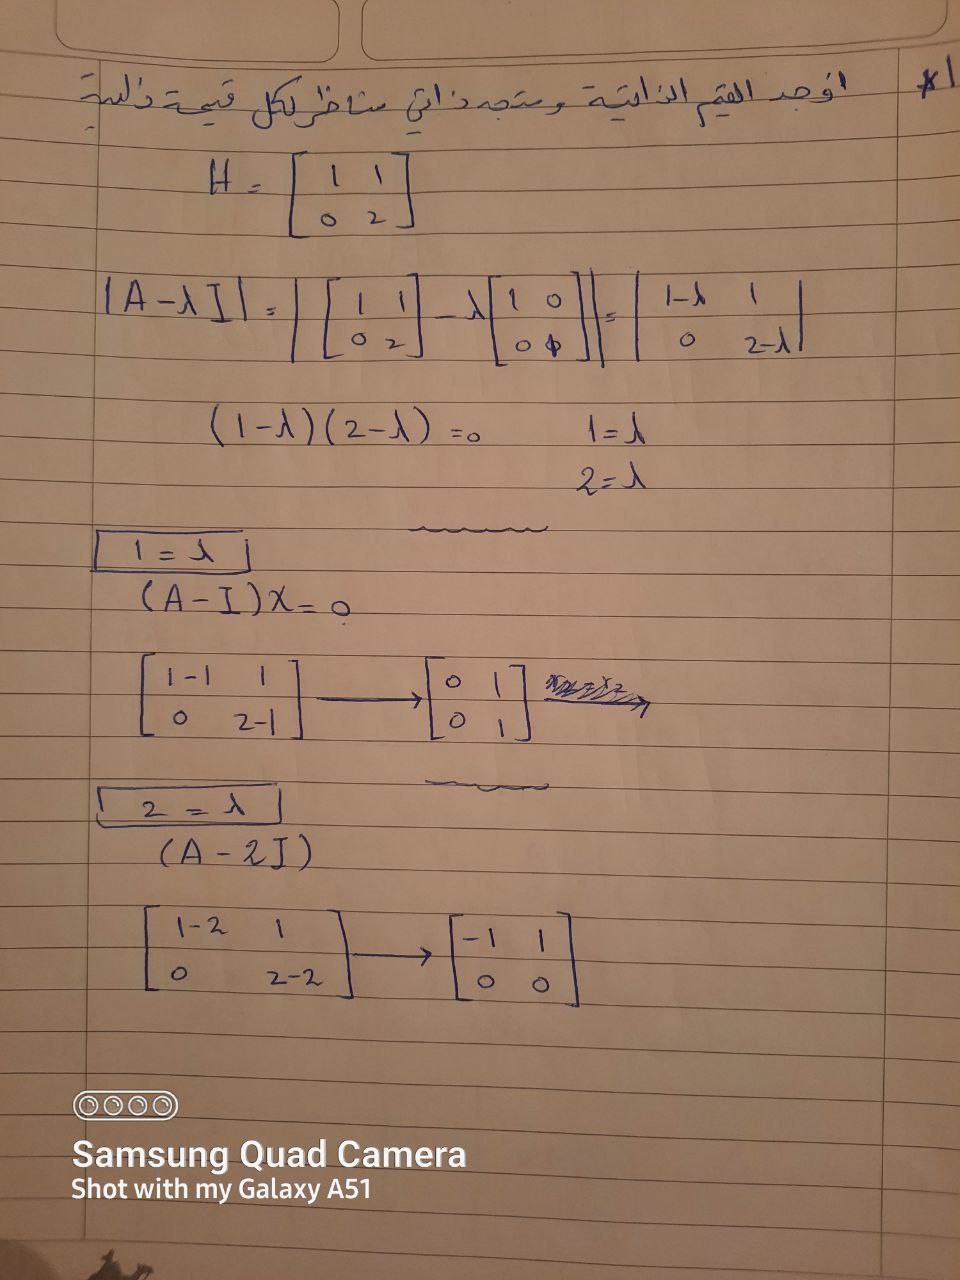 *1 اوجد القيم الذاتية ومتجه ذاتي مناظر لكل قيمة ذاتية
H = [ 1 1 ; 0 2 ]
|A-λI| = | [ 1 1 ; 0 2 ] - λ [ 1 0 ; 0 1 ] | = | 1-λ 1 ; 0 2-λ |
(1-λ)(2-λ) = 0 1=λ
2=λ
1 = λ
(A-I)X = 0
[ 1-1 1 ; 0 2-1 ] → [ 0 1 ; 0 1 ] →
2 = λ
(A - 2I)
[ 1-2 1 ; 0 2-2 ] → [ -1 1 ; 0 0 ]
Samsung Quad Camera
Shot with my Galaxy A51